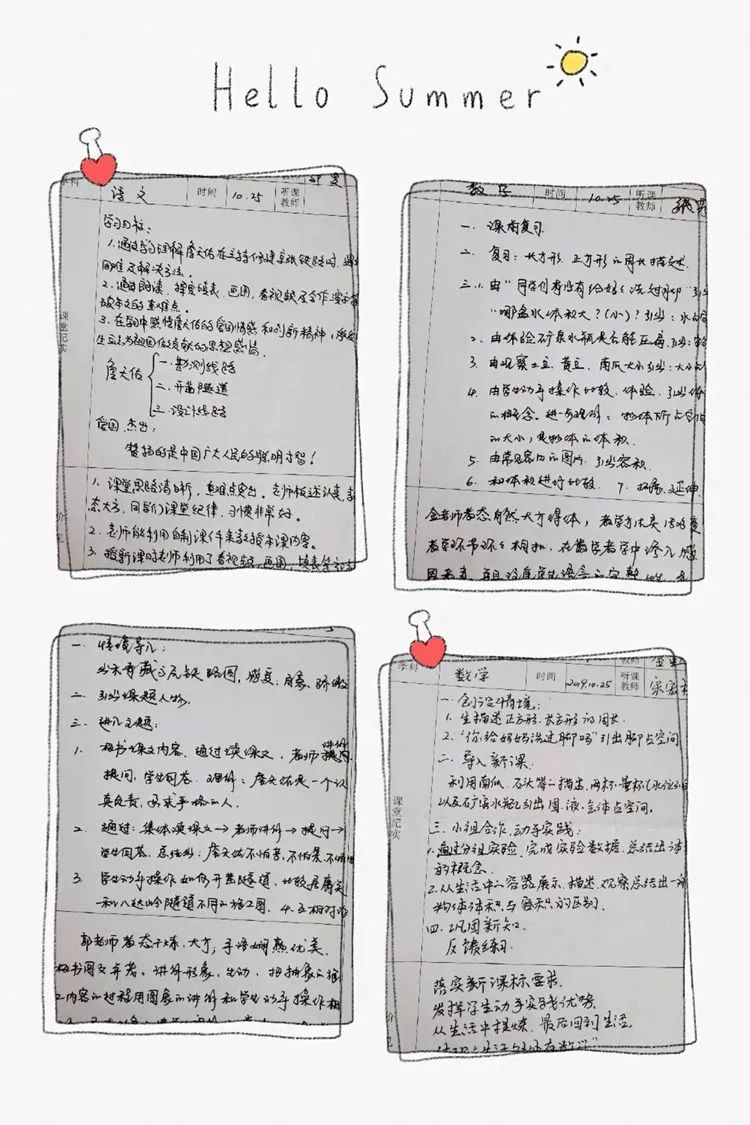 Hello Summer
学科 语文 时间 10.25 听课教师
学习目标:
1.通过学习理解詹天佑在主持修建京张铁路时,遇到
困难及解决方法。
2.通过朗读、填表、画图、看视频及合作演示等
破本文的重难点。
3.在学习中感悟詹天佑的爱国情感和创新精神,
生立志为祖国做贡献的思想感情。
詹天佑
一.勘测线路
二.开凿隧道
三.设计线路
爱国 杰出:
赞扬的是中国广大人民的聪明才智!
课堂纪实
1.课堂思路清晰,重难点突出。老师叙述认真,
态大方,同学们课堂纪律、习惯非常好。
2.老师能利用自制课件来教授本课内容。
3.授新课时老师利用了看视频、画图、填表等方法
数学 时间 10.25 听课教师
一.课前复习
二.复习:长方形、正方形的周长描述.
三.1.由“同学们有没有给妈妈洗过脚”引出
“哪盆水体积大?(小)?引出:水占
2.由体验矿泉水瓶是否能压扁,引出:
3.由观察土豆、黄豆、南瓜大小引出:大小
4.由学生动手操作比较、体验、引出体
的概念。进一步说明:物体所占空间
的大小,是物体的体积.
5.由常见容器的图片,引出容积.
6.和体积进行比较. 7.拓展、延伸
金老师教态自然大方得体,教学方法灵活
教学环节环环相扣,在数学教学中渗入
一.情境导入:
出示青藏高原铁路图,感受、自豪、骄傲
2.引出课题人物.
三.进入主题:
1.板书课文内容.通过读课文,老师讲解
提问,学生回答.理解:詹天佑是一个认
真负责,要求严格的人.
2.通过:集体读课文→老师讲解→提问→
学生回答、总结出:詹天佑不怕苦、不怕累、不怕
3.学生动手操作如何开凿隧道,比较居庸关
和八达岭隧道不同的施工图. 4.互相讨论
郭老师教态干练、大方,手语娴熟优美.
板书图文并茂、讲解形象、生动,把抽象的
内容的过程用图展的讲解和学生动手操作相
学科 数学 时间 2019.10.25 听课教师
一.创设情境:
1.生描述正方形、长方形的周长.
2.“你给妈妈洗过脚吗”引出脚占空间
二.导入新课.
利用南瓜、石头等一描述、两杯量杯水位
以及矿泉水瓶引出固、液、气体占空间.
课堂纪实
三.小组合作,动手实践:
1.通过分组实验、完成实验数据、总结出体
的概念.
2.从生活中的容器展示、描述、观察总结出一
物体体积与容积的区别.
四.巩固新知:
反馈练习.
落实新课标要求.
发挥学生动手实践优势.
从生活中提炼、最后回到生活.